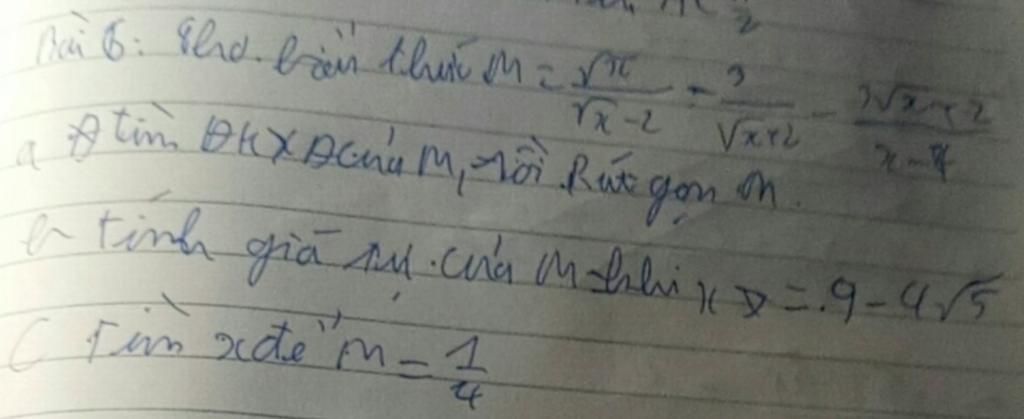 Bài 6: Cho biểu thức M = √x/(√x-2) - 3/(√x+2) - 3√x+2/(x-4)
a tìm ĐKXĐ của M, rồi Rút gọn M.
b tính giá trị của M khi x = 9-4√5
C Tìm x để M = 1/4